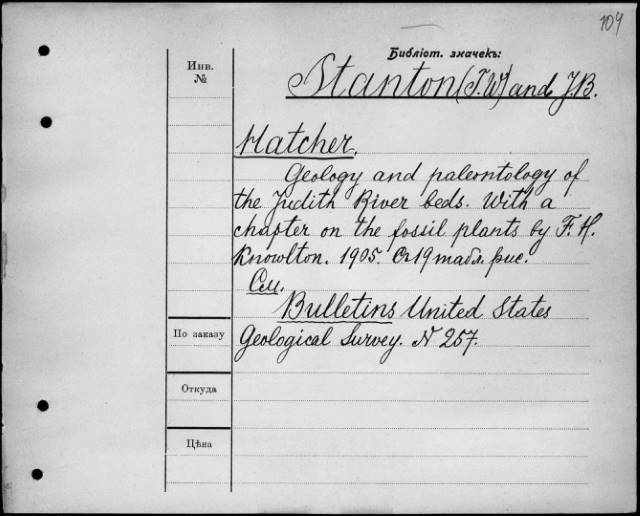 104
Библіот. значекъ:
Инв.
№
Stanton (T.W) and J.B.
Hatcher.
Geology and paleontology of
the Judith River beds. With a
chapter on the fossil plants by F. H.
Knowlton. 1905. Съ 19 табл. рис.
См.
Bulletins United States
По заказу
Geological Survey. N 257.
Откуда
Цѣна